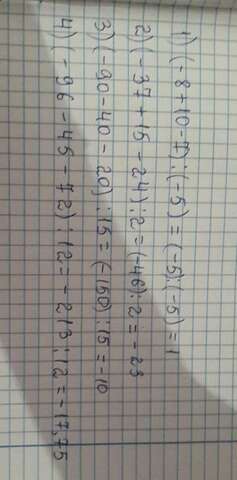 1) (-8+10-7):(-5)=(-5):(-5)=1
2) (-37+15-24):2=(-46):2=-23
3) (-90-40-20):15=(-150):15=-10
4) (-96-45-72):12=-213:12=-17,75